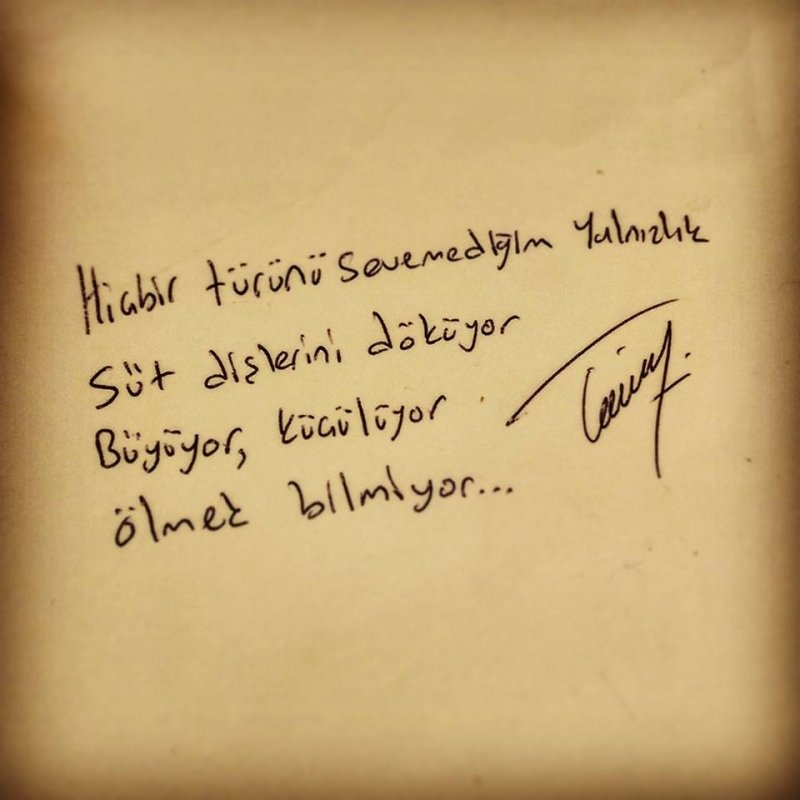 Hiçbir türünü sevemediğim yalnızlık
Süt dişlerini döküyor
Büyüyor, küçülüyor
ölmek bilmiyor...